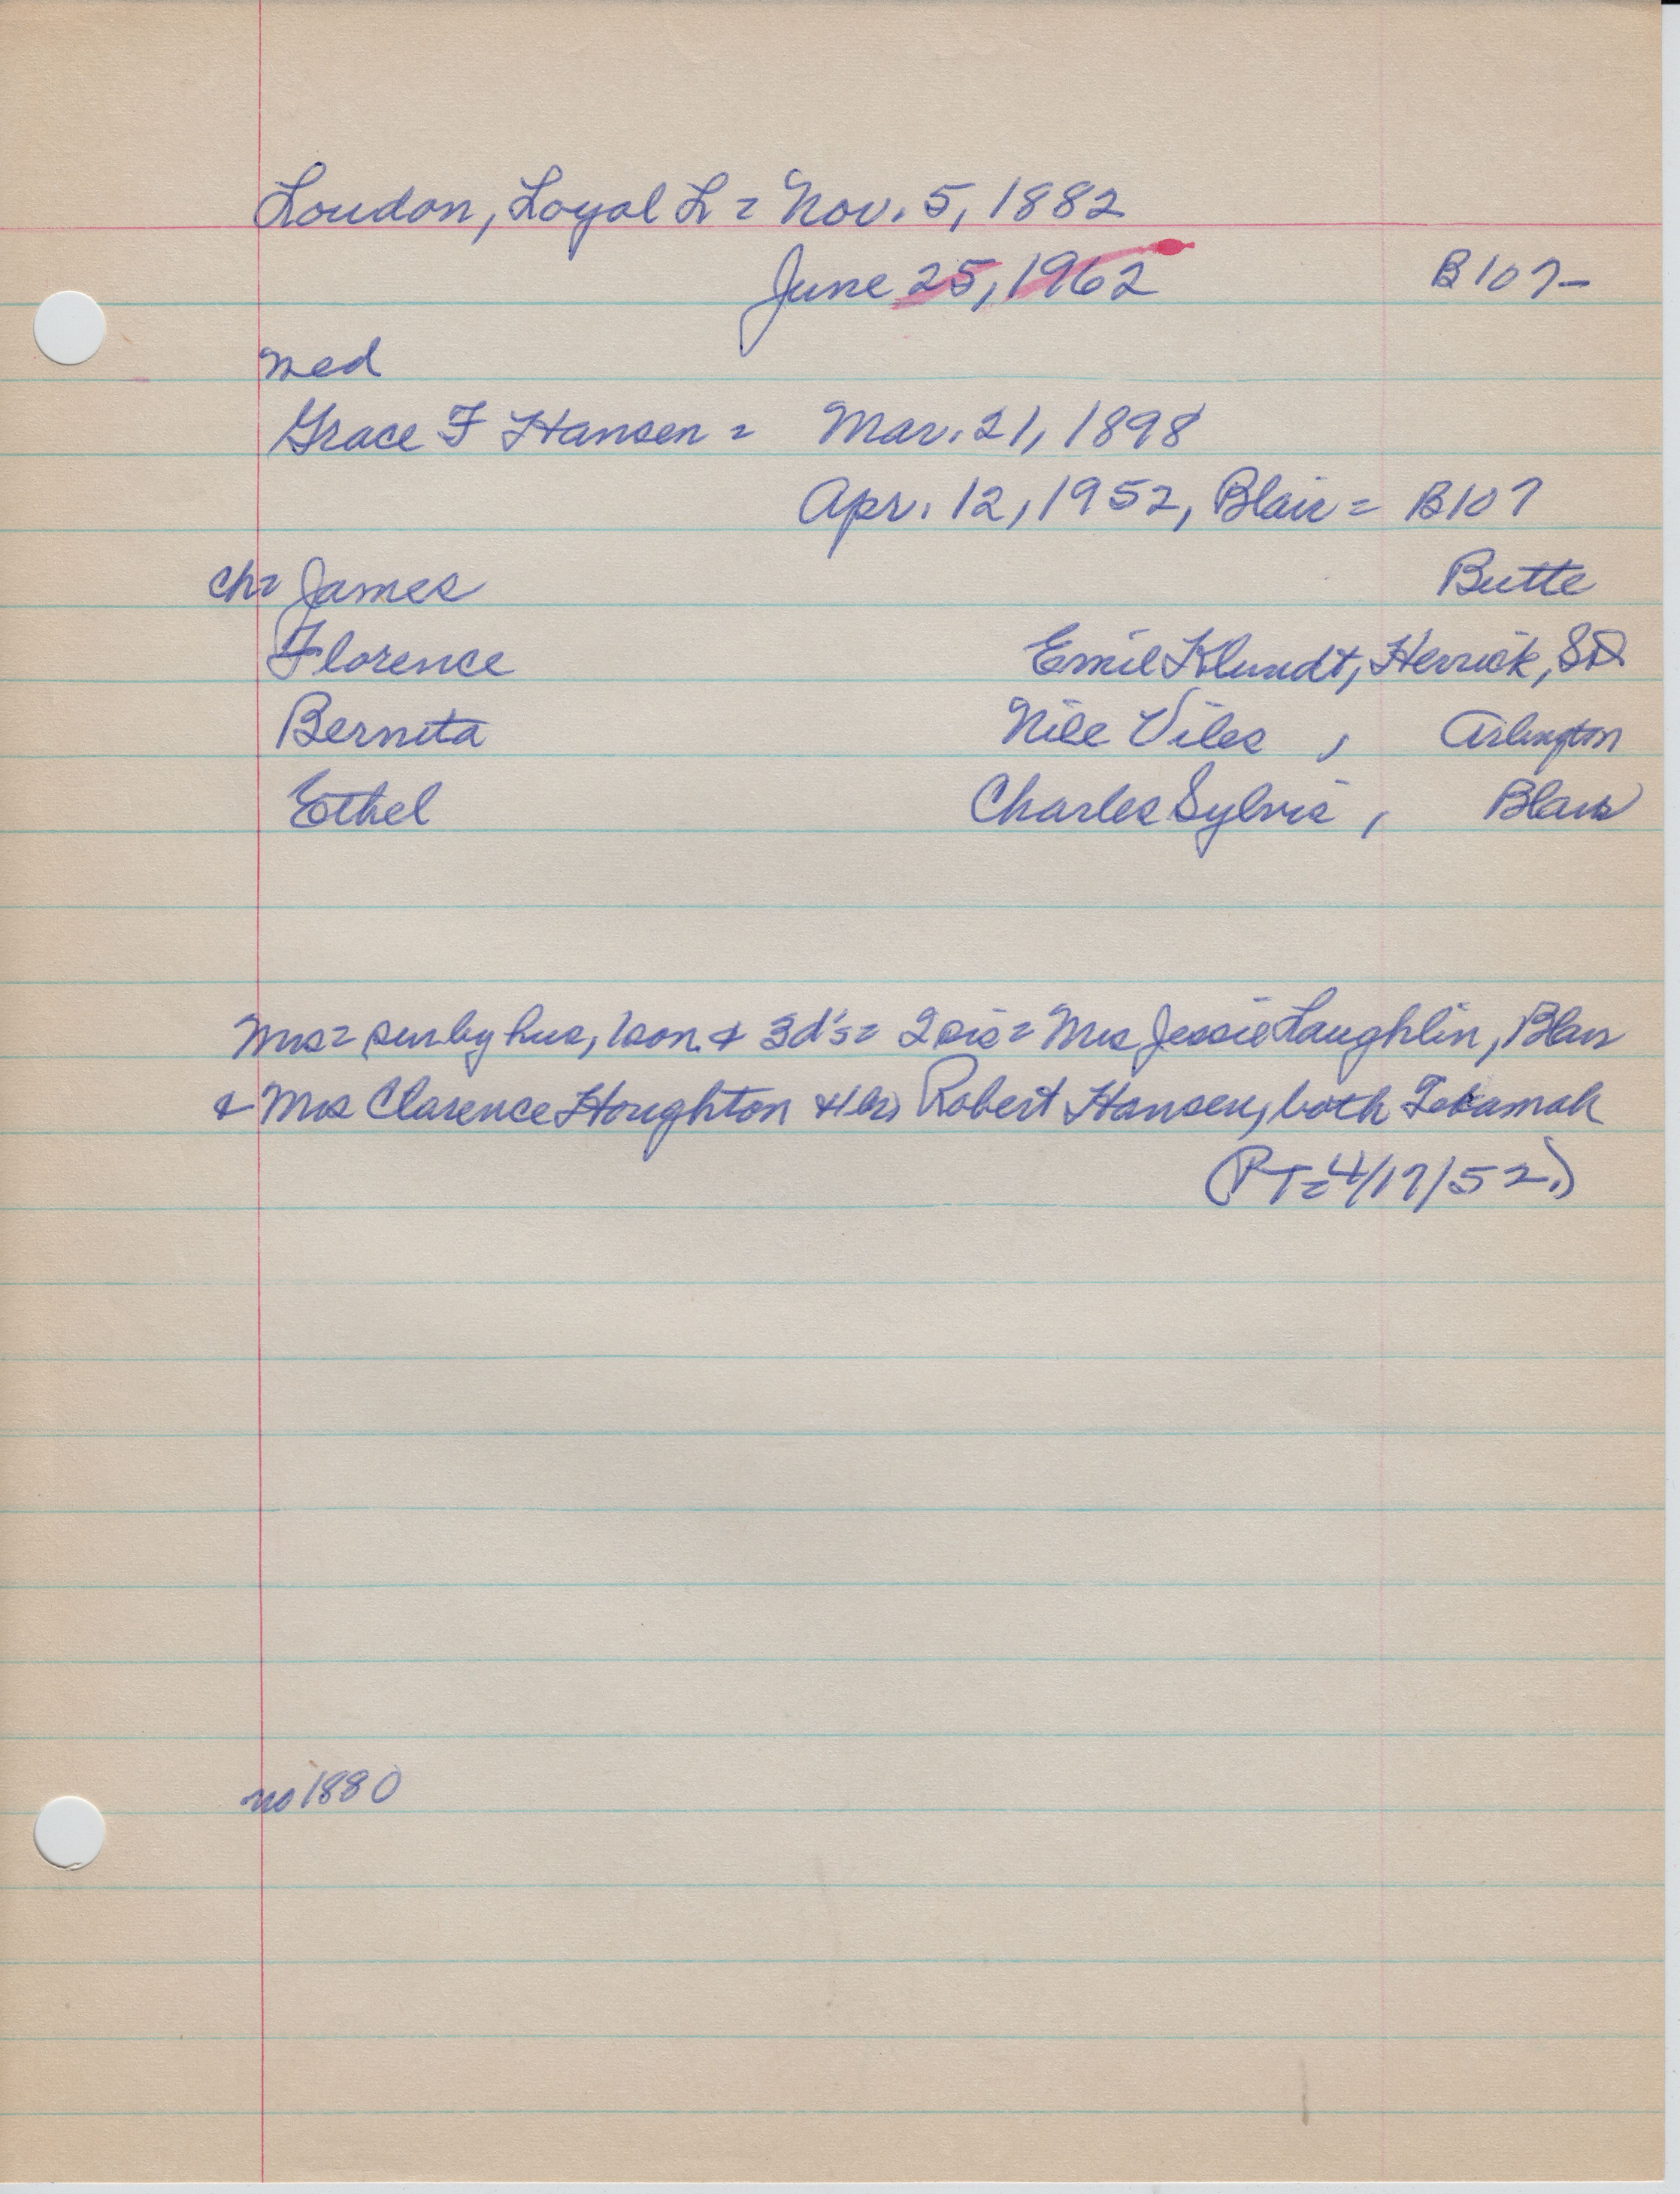 Loudon, Loyal L = Nov. 5, 1882
June 25, 1962 B107-
med
Grace F Hansen = Mar. 21, 1898
Apr. 12, 1952, Blair = B107
ch= James Butte
Florence Emil Klundt, Herrick, SD
Berneta Nile Viles, Arlington
Ethel Charles Sylvis, Blair
Mrs= sur by hus, 1 son & 3 d's= 2 sis= Mrs Jessie Laughlin, Blair
& Mrs Clarence Houghton & 1 br, Robert Hansen, both Tekamah
(PT=4/17/52.)
no 1880